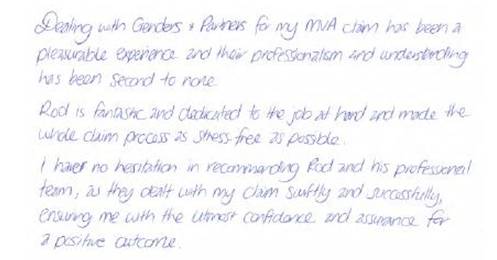 Dealing with Genders & Partners for my MVA claim has been a
pleasurable experience and their professionalism and understanding
has been second to none
Rod is fantastic and dedicated to the job at hand and made the
whole claim process as stress-free as possible.
I have no hesitation in recommending Rod and his professional
team, as they dealt with my claim swiftly and successfully,
ensuring me with the utmost confidence and assurance for
a positive outcome.